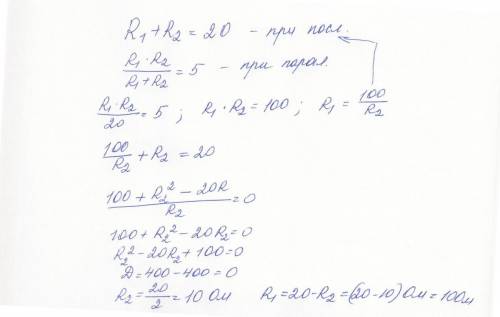 R₁ + R₂ = 20 – при посл.
R₁ · R₂ / R₁ + R₂ = 5 – при парал.
R₁ · R₂ / 20 = 5 ; R₁ · R₂ = 100 ; R₁ = 100 / R₂
100 / R₂ + R₂ = 20
100 + R₂² – 20R / R₂ = 0
100 + R₂² – 20R₂ = 0
R₂² – 20R₂ + 100 = 0
Д = 400 – 400 = 0
R₂ = 20 / 2 = 10 Ом R₁ = 20 – R₂ = (20 – 10) Ом = 10 Ом